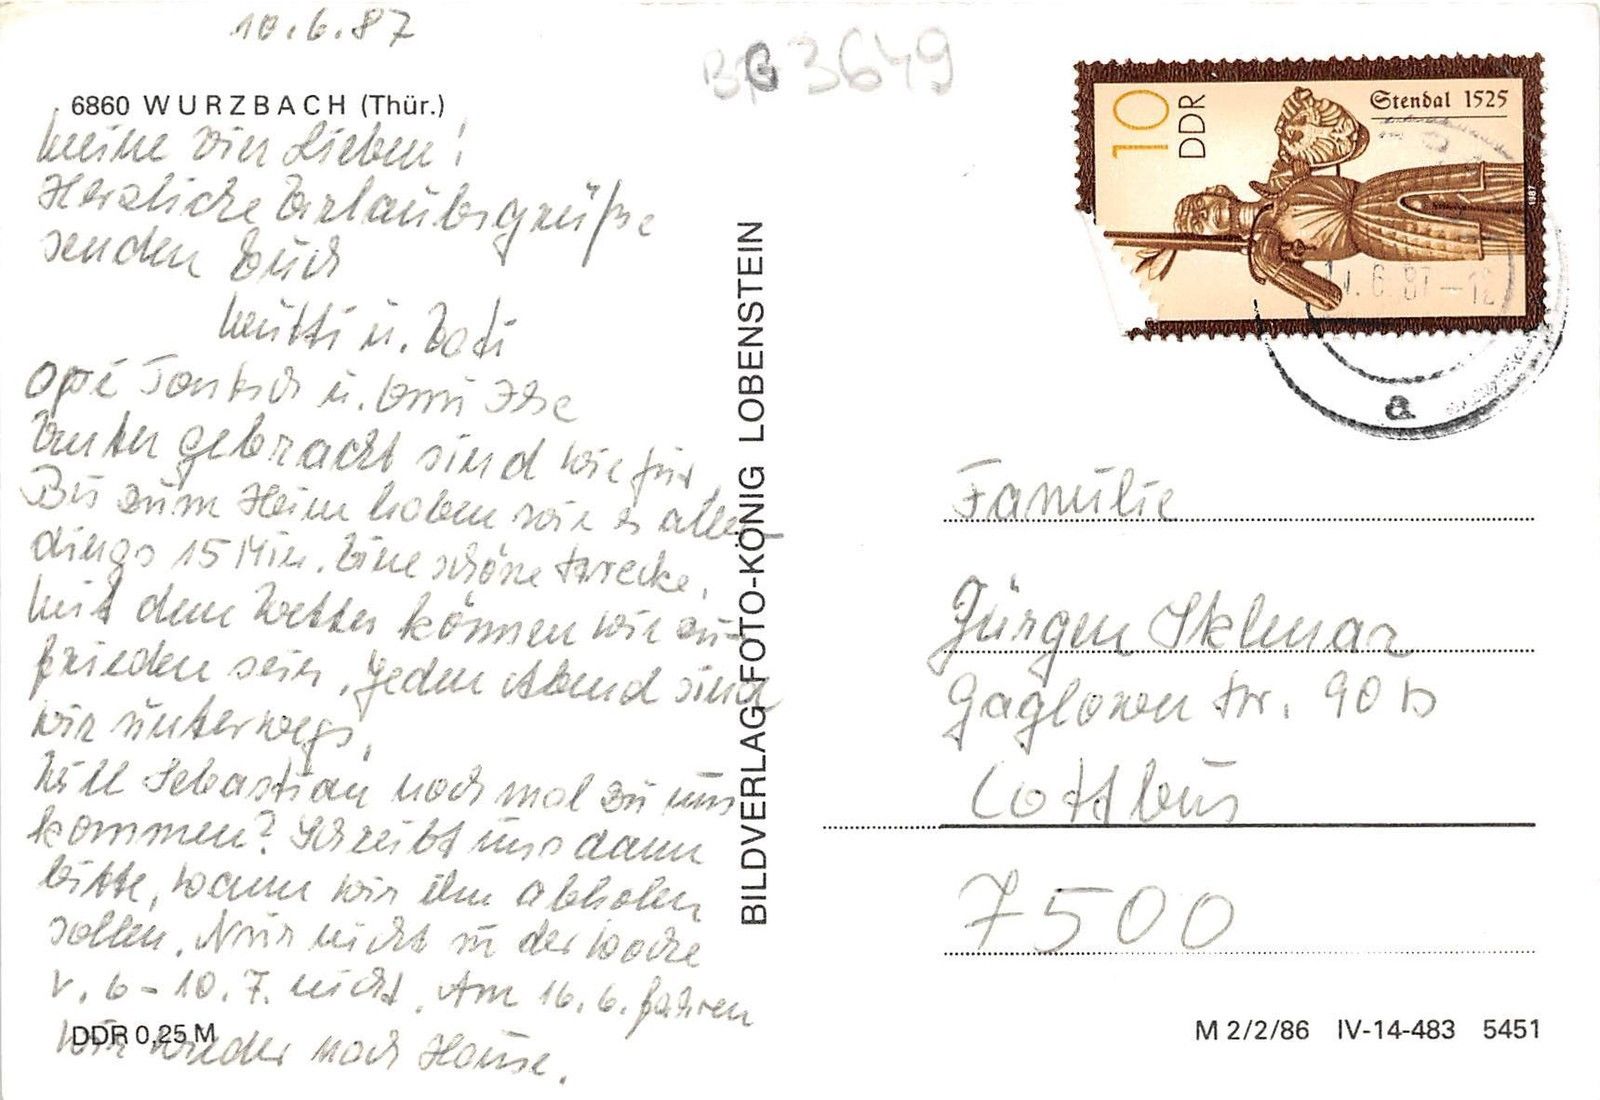 10.6.87
BG 3649
6860 WURZBACH (Thür.)
Meine vier Lieben!
Herzliche Urlaubsgrüße
senden Euch
Mutti u. Vati
Opi u. Omi Ilse
Unter gebracht sind wir gut
Bis zum Heim haben wir es aller
dings 15 Min. Eine schöne Strecke.
Mit dem Wetter können wir zu-
frieden sein. Jeden Abend sind
wir unterwegs.
Will Sebastian noch mal zu uns
kommen? Schreibt uns dann
bitte, wann wir ihn abholen
sollen. Nur nicht in der Woche
v. 6-10.7. nicht. Am 16.6. fahren
wir wieder nach Hause.
DDR 0,25 M
BILDVERLAG FOTO-KÖNIG LOBENSTEIN
10
DDR
Stendal 1525
1987
.6.87-12
a
Familie
Jürgen Sklenar
Gaglower Str. 90 b
Cottbus
7500
M 2/2/86 IV-14-483 5451